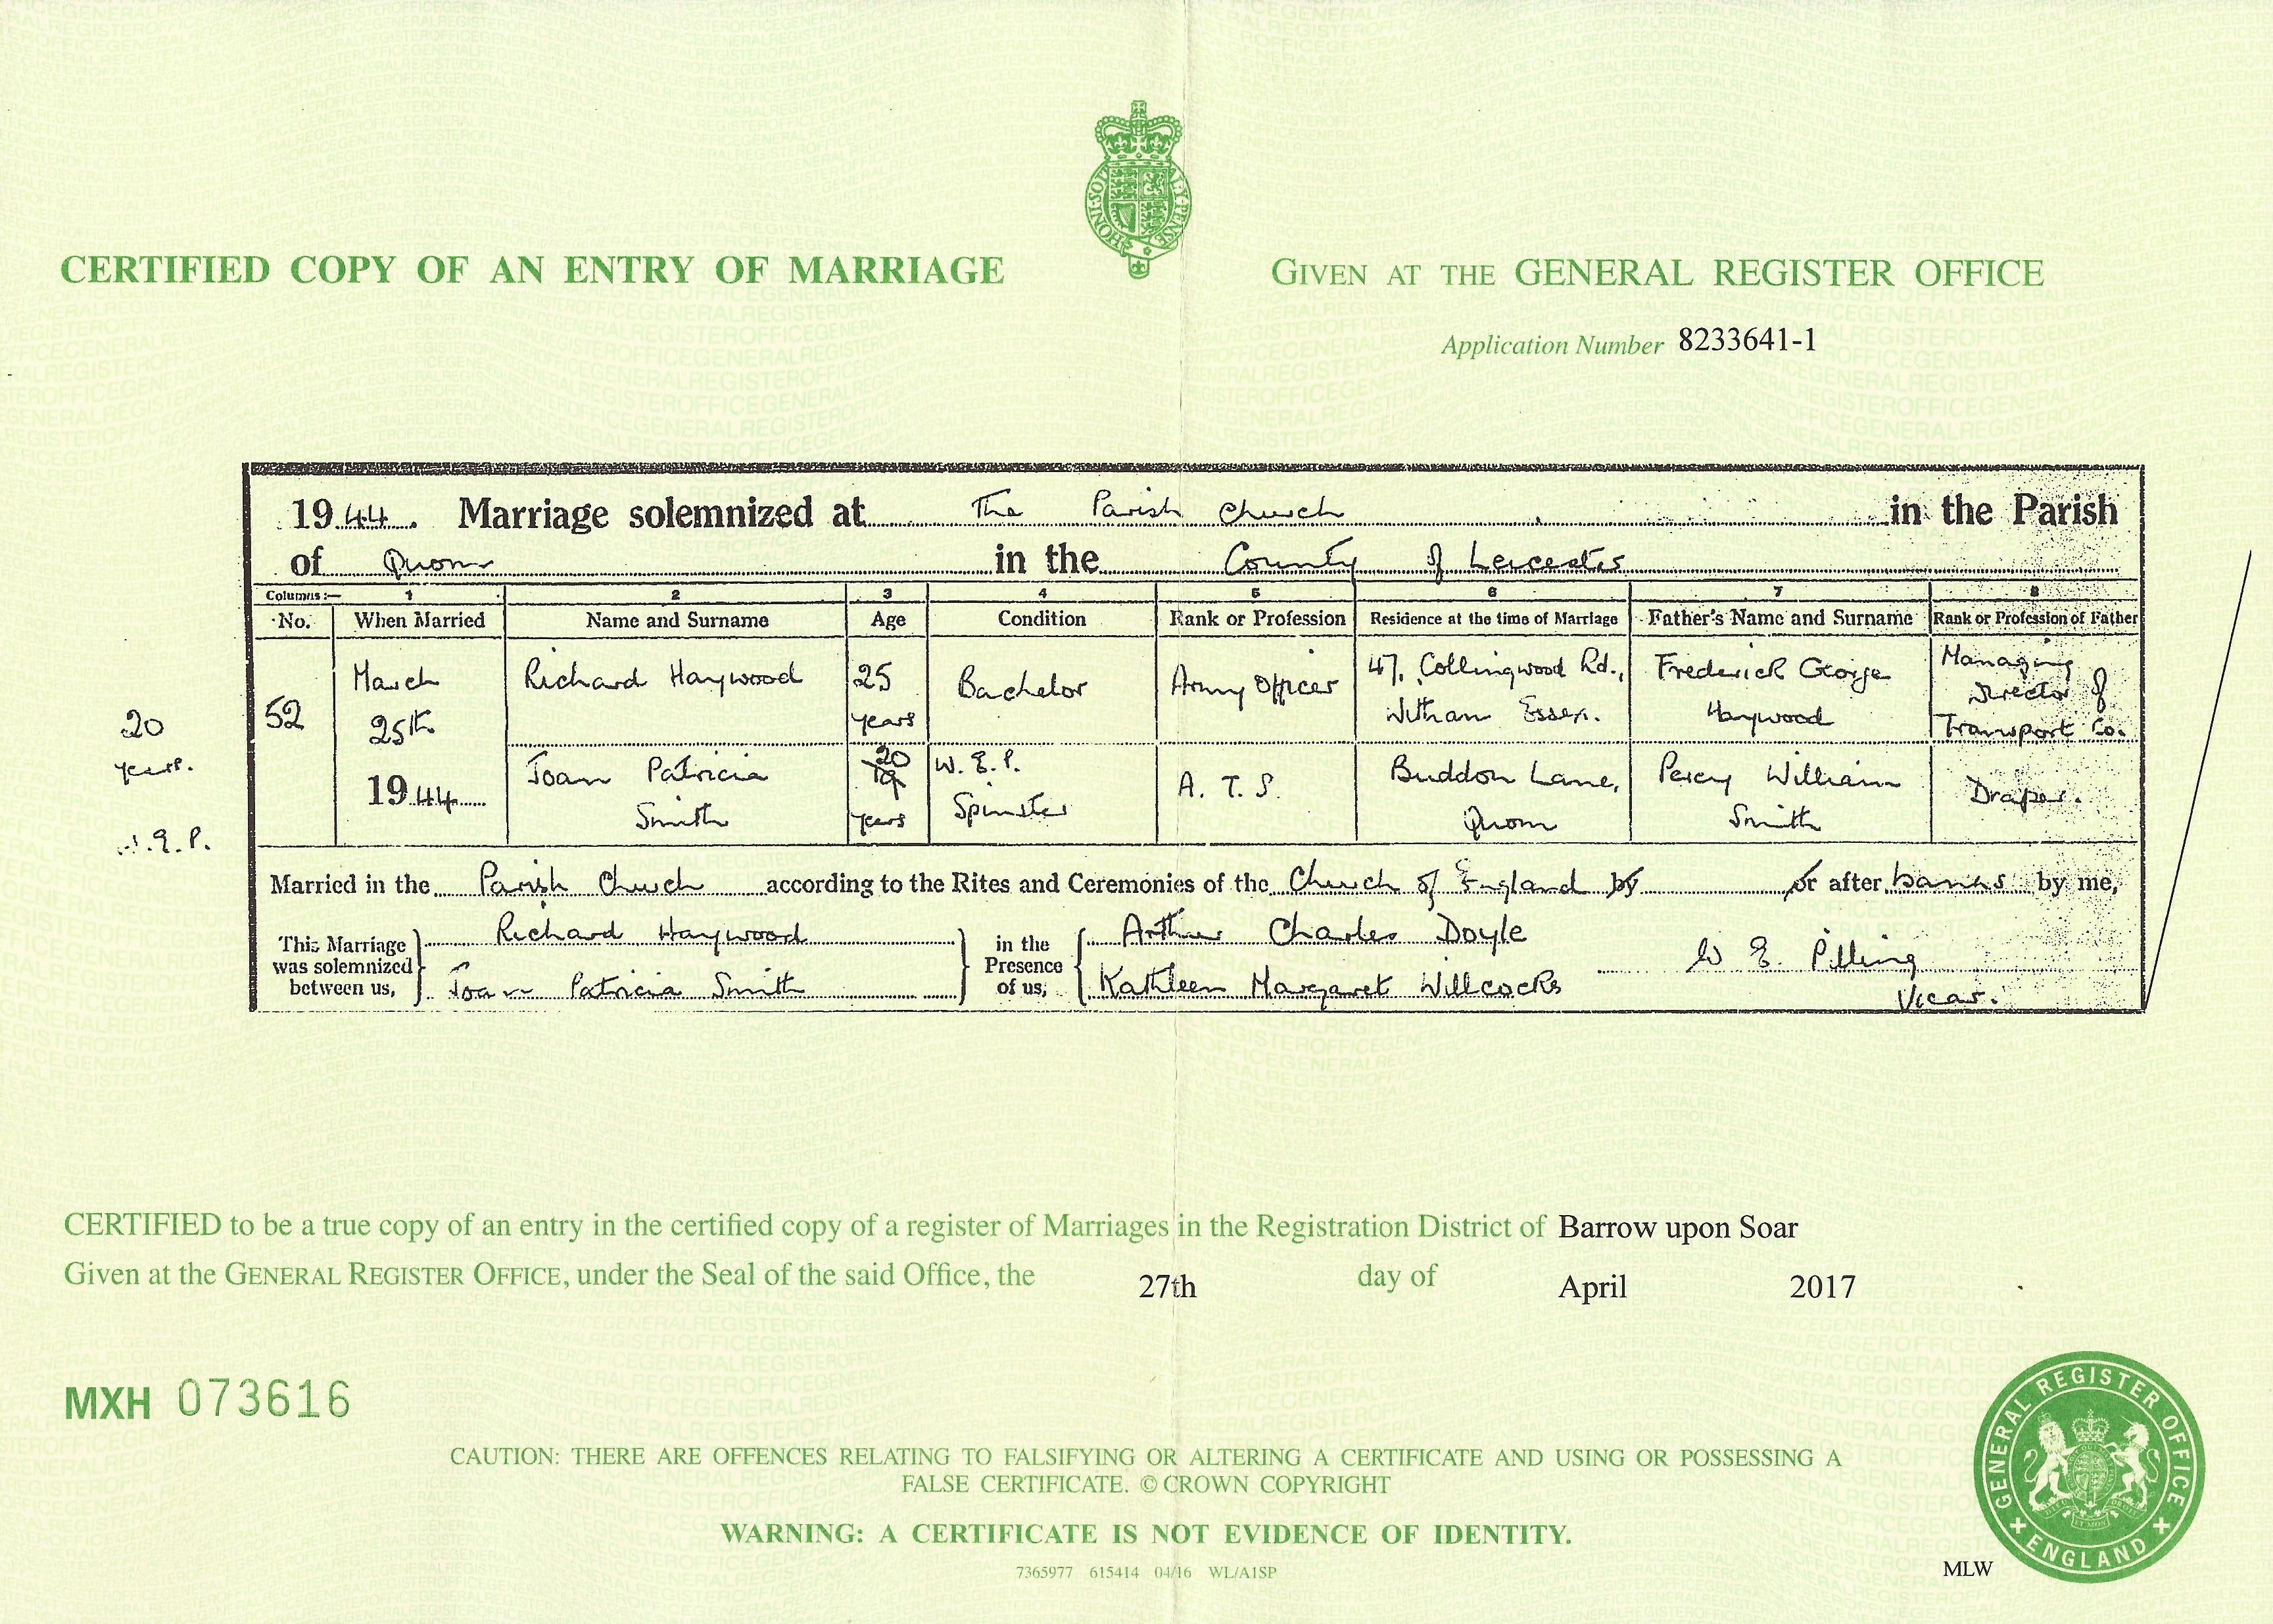 HONI·SOIT AL·Y·PENSE
CERTIFIED COPY OF AN ENTRY OF MARRIAGE
GIVEN AT THE GENERAL REGISTER OFFICE
Application Number 8233641-1
1944. Marriage solemnized at The Parish Church in the Parish
of Quorn in the County of Leicester
Columns:— 1 2 3 4 5 6 7 8
No. When Married Name and Surname Age Condition Rank or Profession Residence at the time of Marriage Father's Name and Surname Rank or Profession of Father
52 March 25th 1944
Richard Haywood 25 years Bachelor Army Officer 47, Collingwood Rd., Witham Essex. Frederick George Haywood Managing Director of Transport Co.
Joan Patricia Smith 20 19 years W. E. P. Spinster A. T. S. Buddon Lane, Quorn Percy William Smith Draper.
20
years.
E. P.
Married in the Parish Church according to the Rites and Ceremonies of the Church of England by or after banns by me,
This Marriage was solemnized between us, Richard Haywood
Joan Patricia Smith
in the Presence of us, Arthur Charles Doyle
Kathleen Margaret Willcocks
W E. Pilling
Vicar.
CERTIFIED to be a true copy of an entry in the certified copy of a register of Marriages in the Registration District of Barrow upon Soar
Given at the GENERAL REGISTER OFFICE, under the Seal of the said Office, the 27th day of April 2017
MXH 073616
CAUTION: THERE ARE OFFENCES RELATING TO FALSIFYING OR ALTERING A CERTIFICATE AND USING OR POSSESSING A
FALSE CERTIFICATE. © CROWN COPYRIGHT
WARNING: A CERTIFICATE IS NOT EVIDENCE OF IDENTITY.
7365977 615414 04/16 WL/A1SP
MLW
GENERAL REGISTER OFFICE
ENGLAND